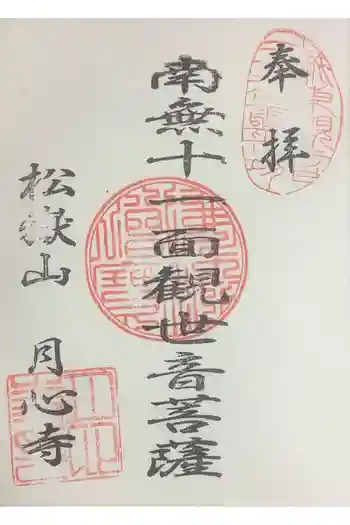 奉拝
南無十一面観世音菩薩
松嶽山 月心寺